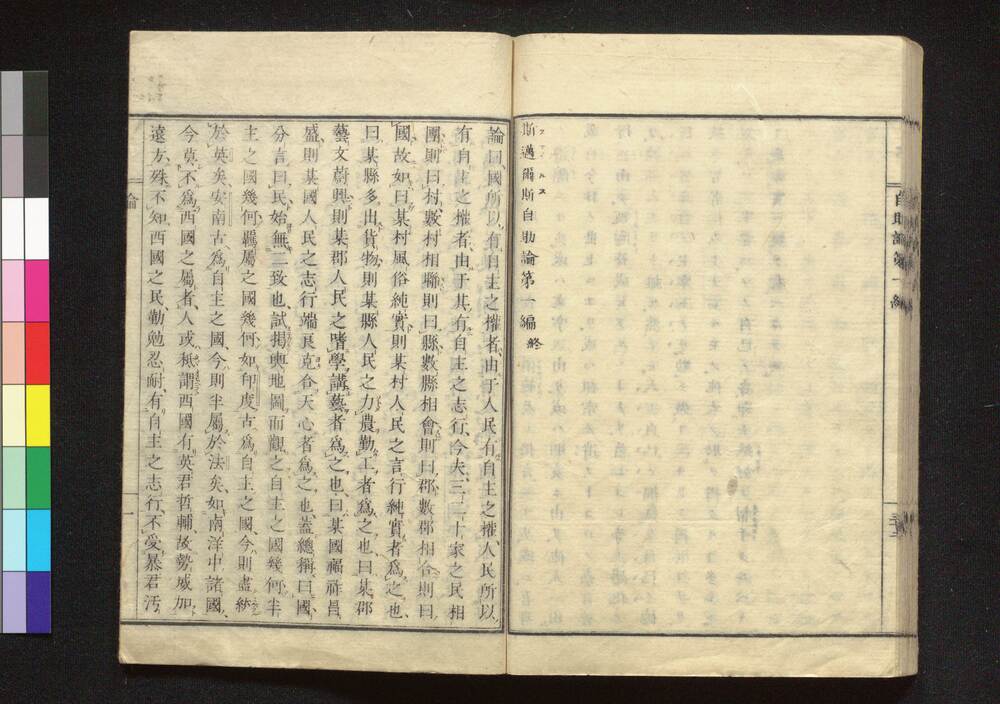 自助論第一編
斯邁爾斯自助論第一編 終
論曰、國所以有自主之權者、由于人民有自主之權、人民所以
有自主之權者、由于其有自主之志行、今夫二三十家之民相
團則曰村、數村相聯則曰縣、數縣相會則曰郡、數郡相合則曰
國、故如曰某村風俗純實、則某村人民之言行純實者為之也、
曰某縣多出貨物、則某縣人民之力農勤工者為之也、曰某郡
藝文蔚興、則某郡人民之嗜學講藝者為之也、曰某國福祚昌
盛、則某國人民之志行端良、克合天心者為之也、蓋總稱曰國、
分言曰民、殆無二致也、試揭輿地圖而觀之、自主之國幾何、半
主之國幾何、羈屬之國幾何、如印度古為自主之國、今則盡統
於英矣、安南古為自主之國、今則半屬於法矣、如南洋中諸國、
今莫不為西國之屬者、人或秪謂西國有英君哲輔、故勢威加
遠方、殊不知西國之民勤勉忍耐、有自主之志行、不受暴君汚
論
一